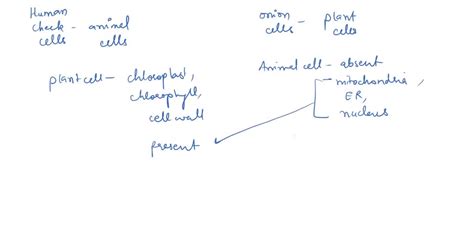 Human
cheek - animal
cells cells
onion - plant
cells cells
plant cell - chloroplast,
chlorophyll,
cell wall
present
Animal cell - absent
mitochondria,
ER,
nucleus